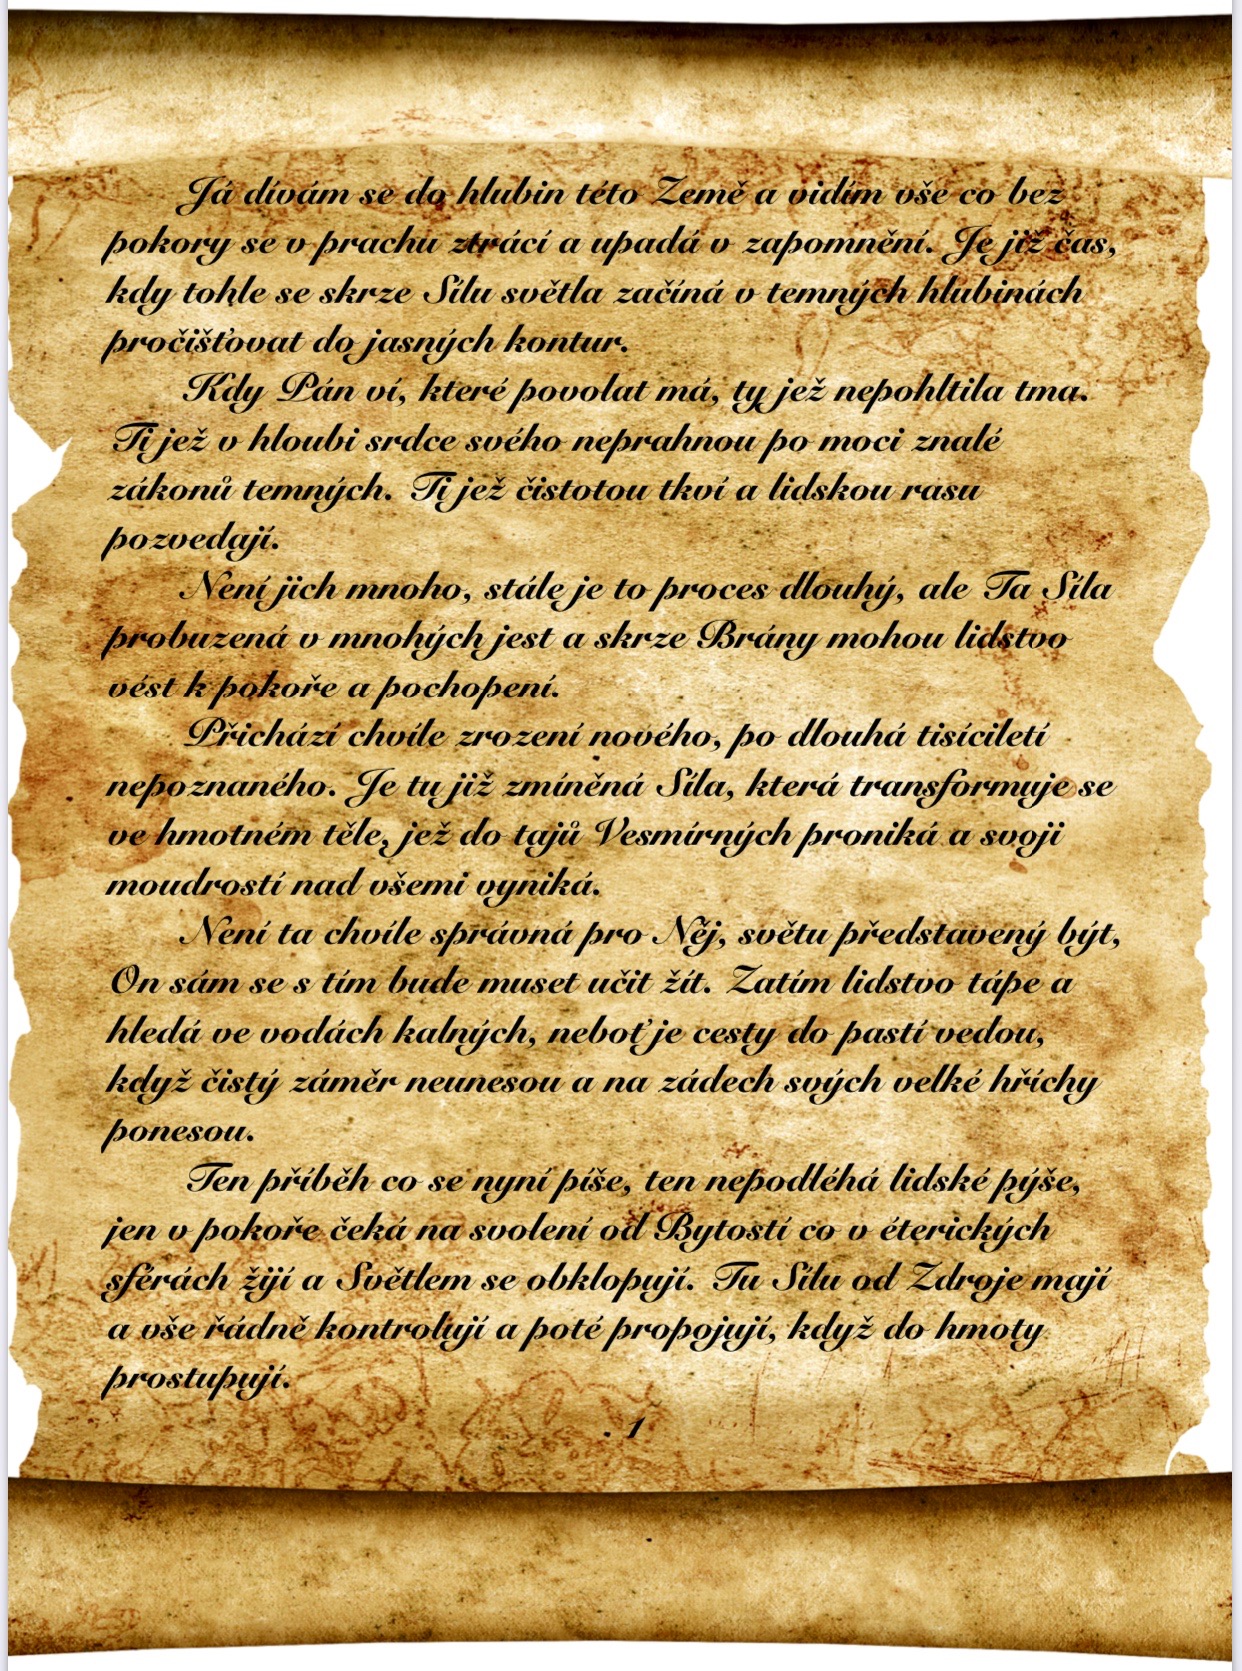 Já dívám se do hlubin této Země a vidím vše co bez
pokory se v prachu ztrácí a upadá v zapomnění. Je již čas,
kdy tohle se skrze Sílu světla začíná v temných hlubinách
pročišťovat do jasných kontur.
Kdy Pán ví, které povolat má, ty jež nepohltila tma.
Ti jež v hloubi srdce svého neprahnou po moci znalé
zákonů temných. Ti jež čistotou tkví a lidskou rasu
pozvedají.
Není jich mnoho, stále je to proces dlouhý, ale Ta Síla
probuzená v mnohých jest a skrze Brány mohou lidstvo
vést k pokoře a pochopení.
Přichází chvíle zrození nového, po dlouhá tisíciletí
nepoznaného. Je tu již zmíněná Síla, která transformuje se
ve hmotném těle, jež do tajů Vesmírných proniká a svoji
moudrostí nad všemi vyniká.
Není ta chvíle správná pro Něj, světu představený být,
On sám se s tím bude muset učit žít. Zatím lidstvo tápe a
hledá ve vodách kalných, neboť je cesty do pastí vedou,
když čistý záměr neunesou a na zádech svých velké hříchy
ponesou.
Ten příběh co se nyní píše, ten nepodléhá lidské pýše,
jen v pokoře čeká na svolení od Bytostí co v éterických
sférách žijí a Světlem se obklopují. Tu Sílu od Zdroje mají
a vše řádně kontrolují a poté propojují, když do hmoty
prostupují.
. 1